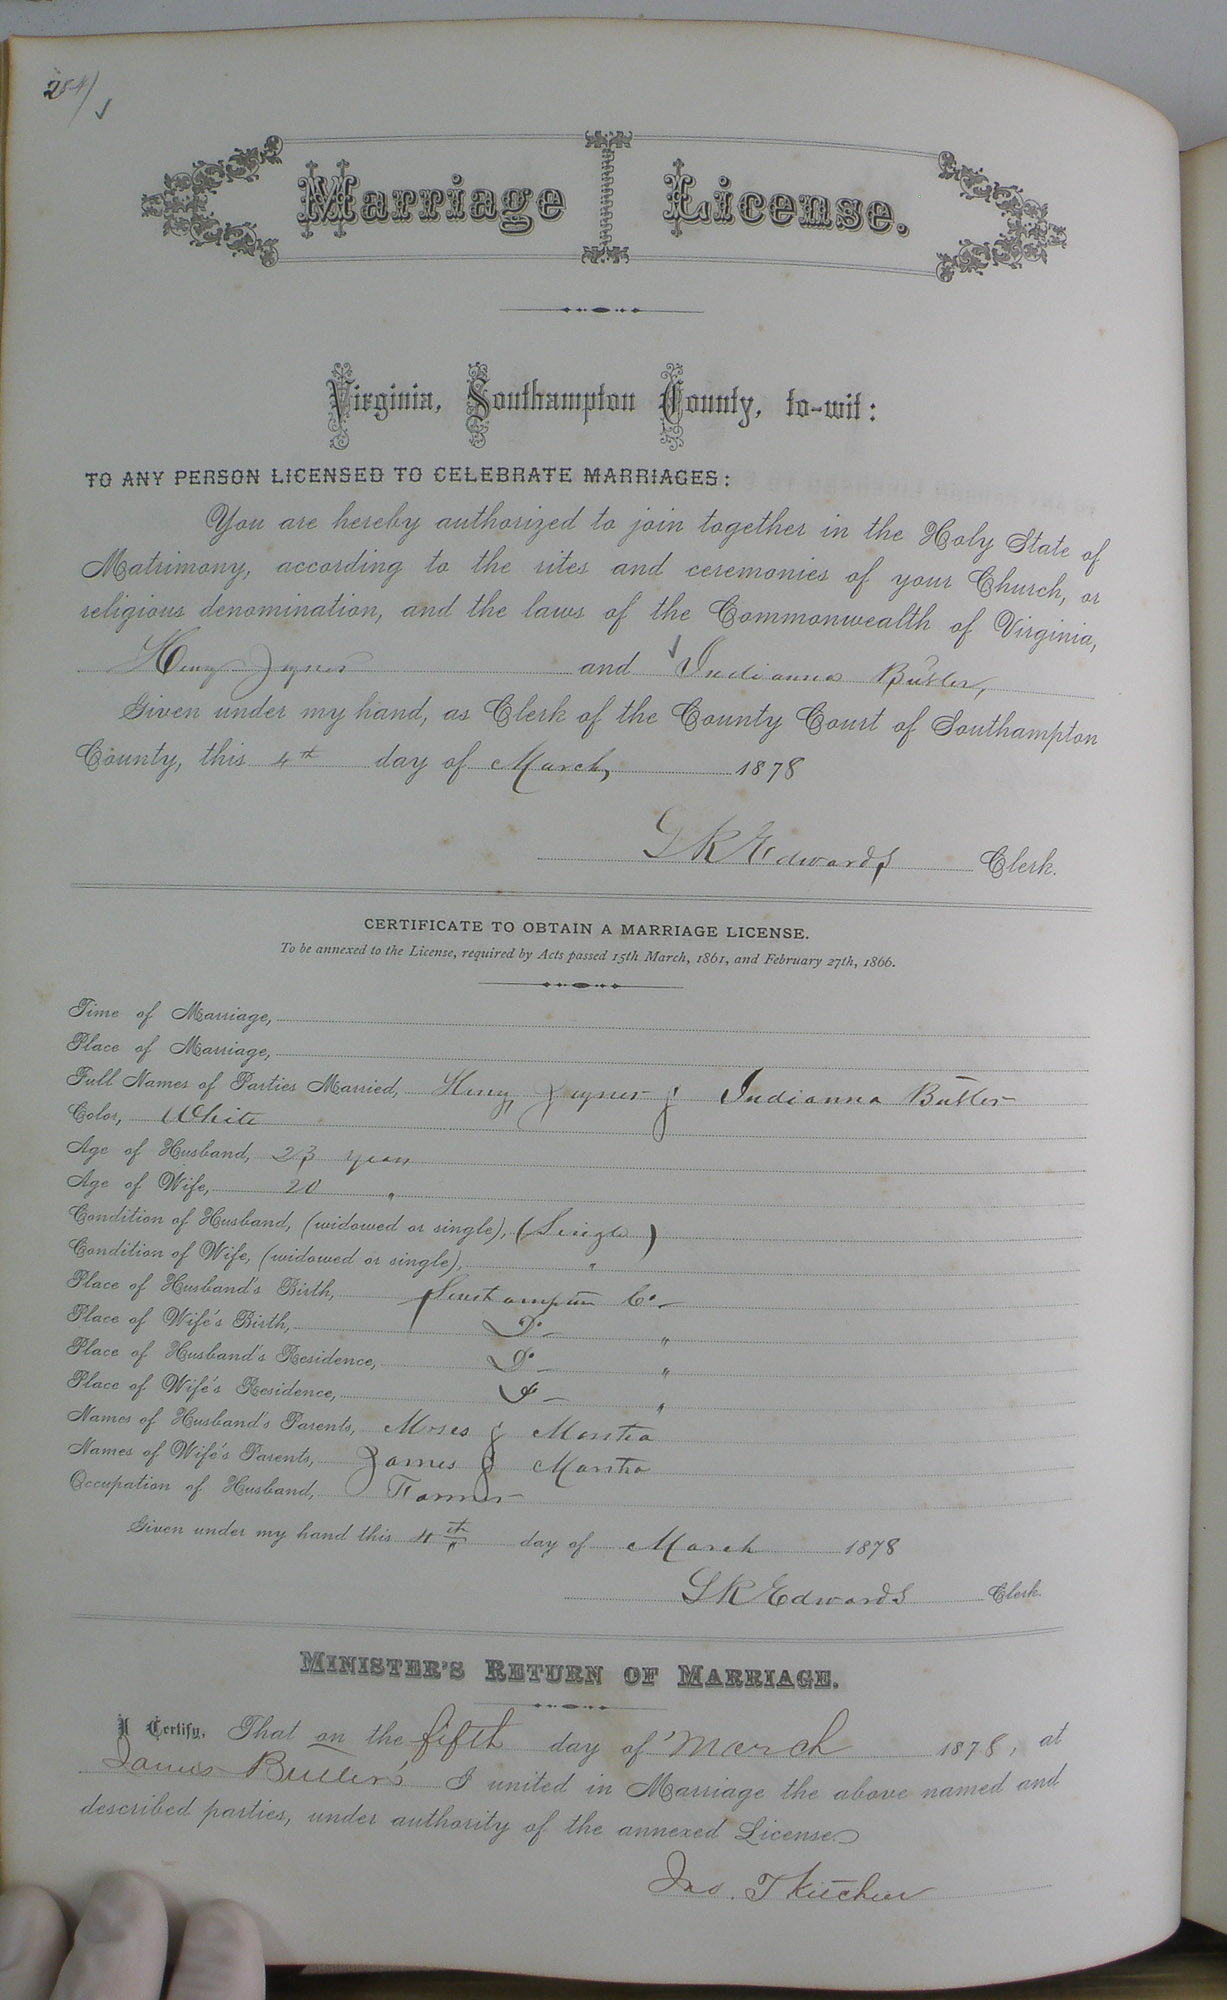 Marriage License.
Virginia, Southampton County, to-wit:
TO ANY PERSON LICENSED TO CELEBRATE MARRIAGES:
You are hereby authorized to join together in the Holy State of
Matrimony, according to the rites and ceremonies of your Church, or
religious denomination, and the laws of the Commonwealth of Virginia,
Henry Joyner and Indianna Butler,
Given under my hand, as Clerk of the County Court of Southampton
County, this 4th day of March, 1878
L R Edwards Clerk.
CERTIFICATE TO OBTAIN A MARRIAGE LICENSE.
To be annexed to the License, required by Acts passed 15th March, 1861, and February 27th, 1866.
Time of Marriage,
Place of Marriage,
Full Names of Parties Married, Henry Joyner & Indianna Butler
Color, White
Age of Husband, 23 years
Age of Wife, 20 "
Condition of Husband, (widowed or single), (Single)
Condition of Wife, (widowed or single), "
Place of Husband's Birth, Southampton Co.
Place of Wife's Birth, Do "
Place of Husband's Residence, Do "
Place of Wife's Residence, Do "
Names of Husband's Parents, Moses & Martha
Names of Wife's Parents, James & Martha
Occupation of Husband, Farmer
Given under my hand this 4th day of March 1878
L R Edwards Clerk.
MINISTER'S RETURN OF MARRIAGE.
I Certify, That on the fifth day of March 1878, at
James Butler's I united in Marriage the above named and
described parties, under authority of the annexed License
Jno. T Kitchen